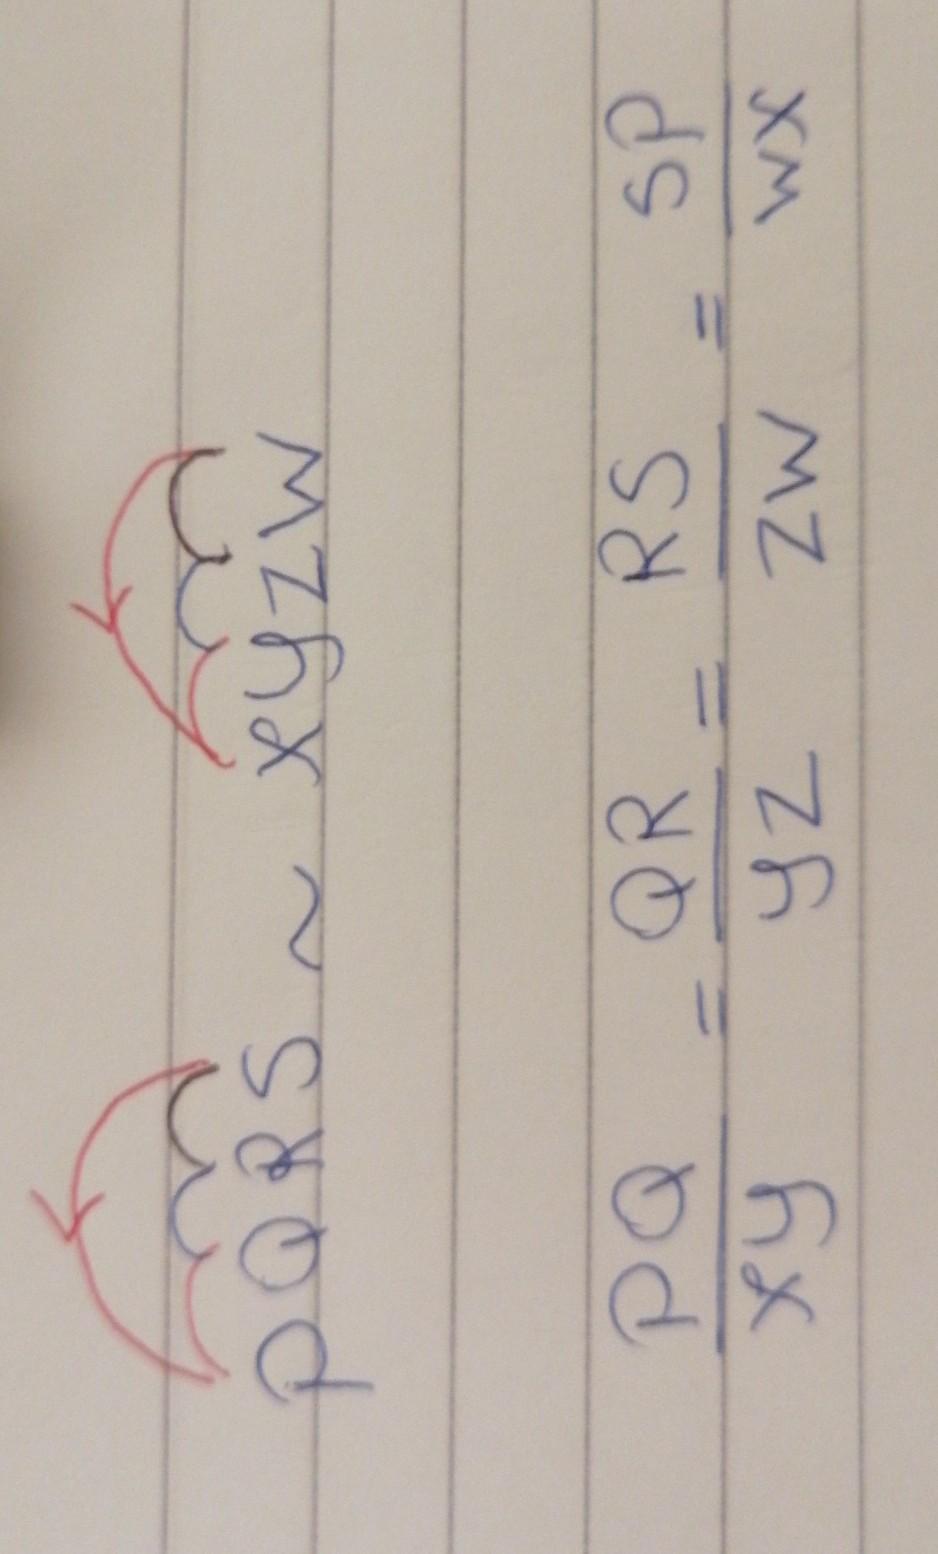 PQRS ~ xyzw
PQ/xy = QR/yz = RS/zw = SP/wx